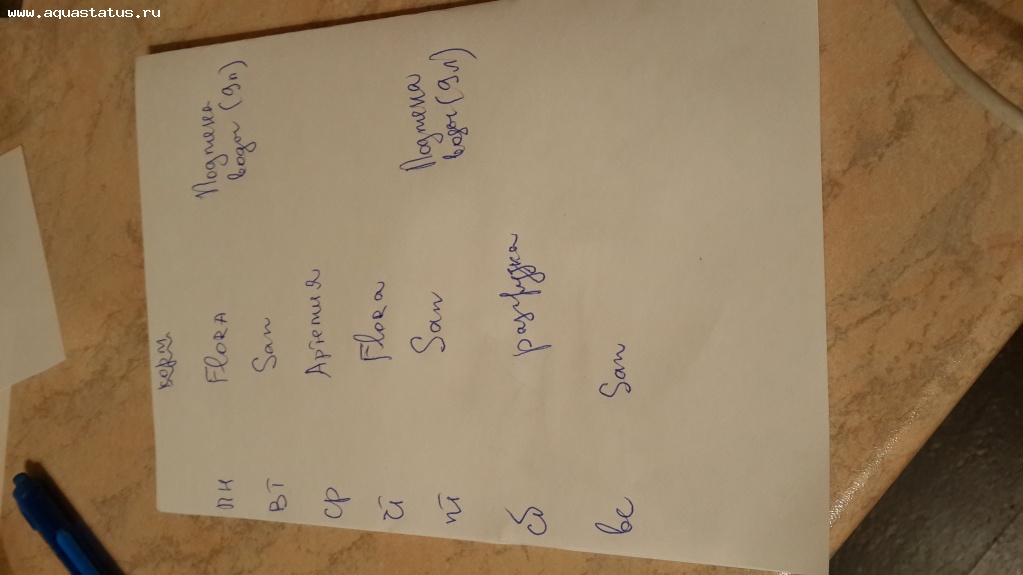 www.aquastatus.ru
корм
пн Flora Подмена воды (9л)
вт San
ср Артемия
чт Flora
пт San Подмена воды (9л)
сб разгрузка
вс San